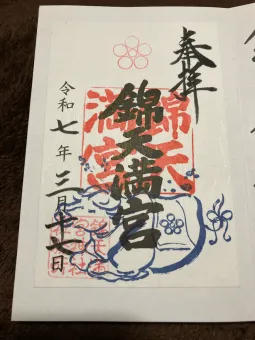 奉拝
錦天満宮
錦天
満宮
令和七年三月十七日